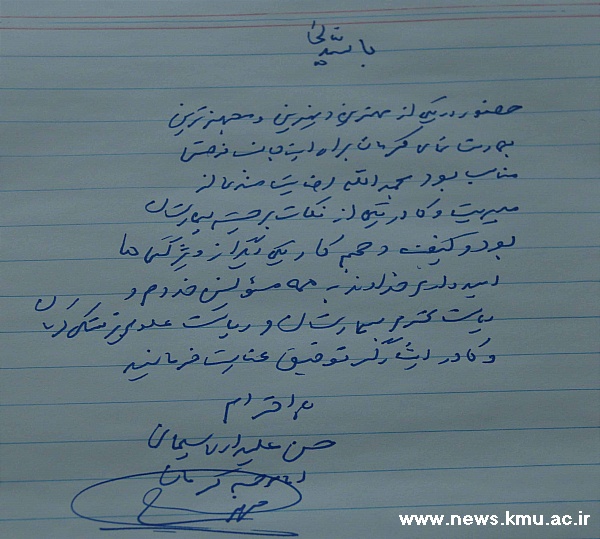 باسمه تعالی
حضور در یکی از مهمترین و بهترین و مجهزترین
بیمارستانهای کرمان برای اینجانب فرصتی
مناسب بود بحمدالله رضایت مندی از
مدیریت و کادر یکی از نکات برجسته بیمارستان
بود و کیفیت و حجم کار یکی دیگر از ویژگی ها
امیدوارم خداوند به همه مسئولین خدوم و
ریاست محترم بیمارستان و ریاست علوم پزشکی کرمان
و کادر ایثارگر توفیق عنایت فرمایند
با احترام
حسن علیدادی سلیمانی
امام جمعه کرمان
www.news.kmu.ac.ir